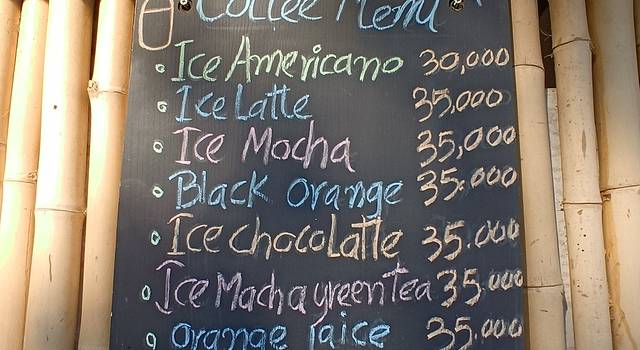 Coffee Menu
Ice Americano 30,000
Ice Latte 35,000
Ice Mocha 35,000
Black Orange 35.000
Ice chocolatte 35.000
Ice Macha green tea 35.000
Orange jaice 35.000